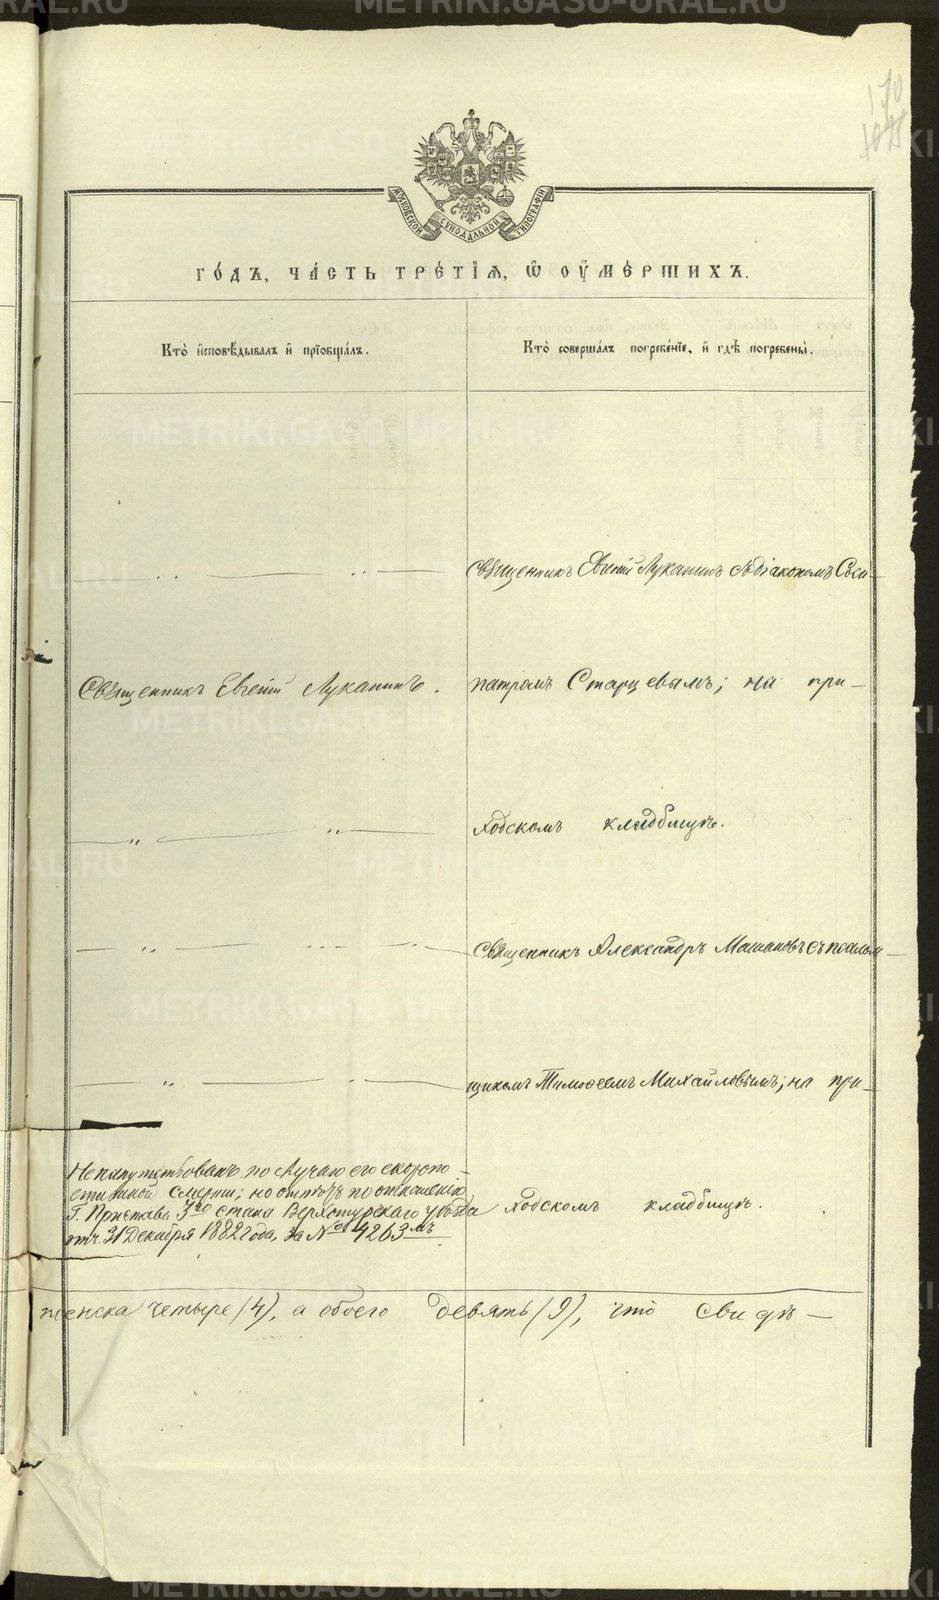 170
МОСКОВСКОЙ СѴНОДАЛЬНОЙ ТИПОГРАФІИ
ГО́ДЪ, ЧА́СТЬ ТРЕ́ТІѦ, Ѡ҆ ОУ҆МЕ́РШИХЪ.
Кто̀ и҆сповѣ́дывалъ и҆ прїѡбща́лъ.
Кто̀ соверша́лъ погребе́нїе, и҆ гдѣ̀ погребены̀.
Священникъ Евгеній Луканинъ съ діакономъ Соси-
Священникъ Евгеній Луканинъ.
патромъ Старцевымъ; на при-
ходскомъ кладбищѣ.
Священникъ Александръ Машановъ съ псалом-
щикомъ Тимоѳеемъ Михайловымъ; на при-
Ненапутствованъ по случаю его скоропо-
стижной смерти; но отпѣтъ по отношенію
Г. Пристава 3го стана Верхотурскаго уѣзда
отъ 31 Декабря 1882 года, за № 4263мъ
ходскомъ кладбищѣ.
женска четыре (4), а обоего девять (9), что свидѣ-
METRIKI.GASO-URAL.RU